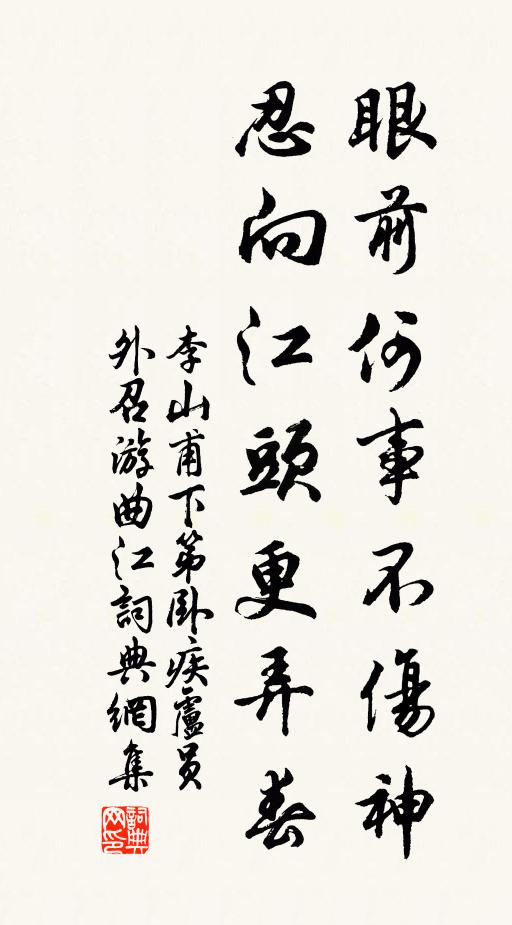 眼前何事不傷神
忍向江頭更弄春
李山甫下第臥疾盧員
外召游曲江詞典網集
詞典
网印